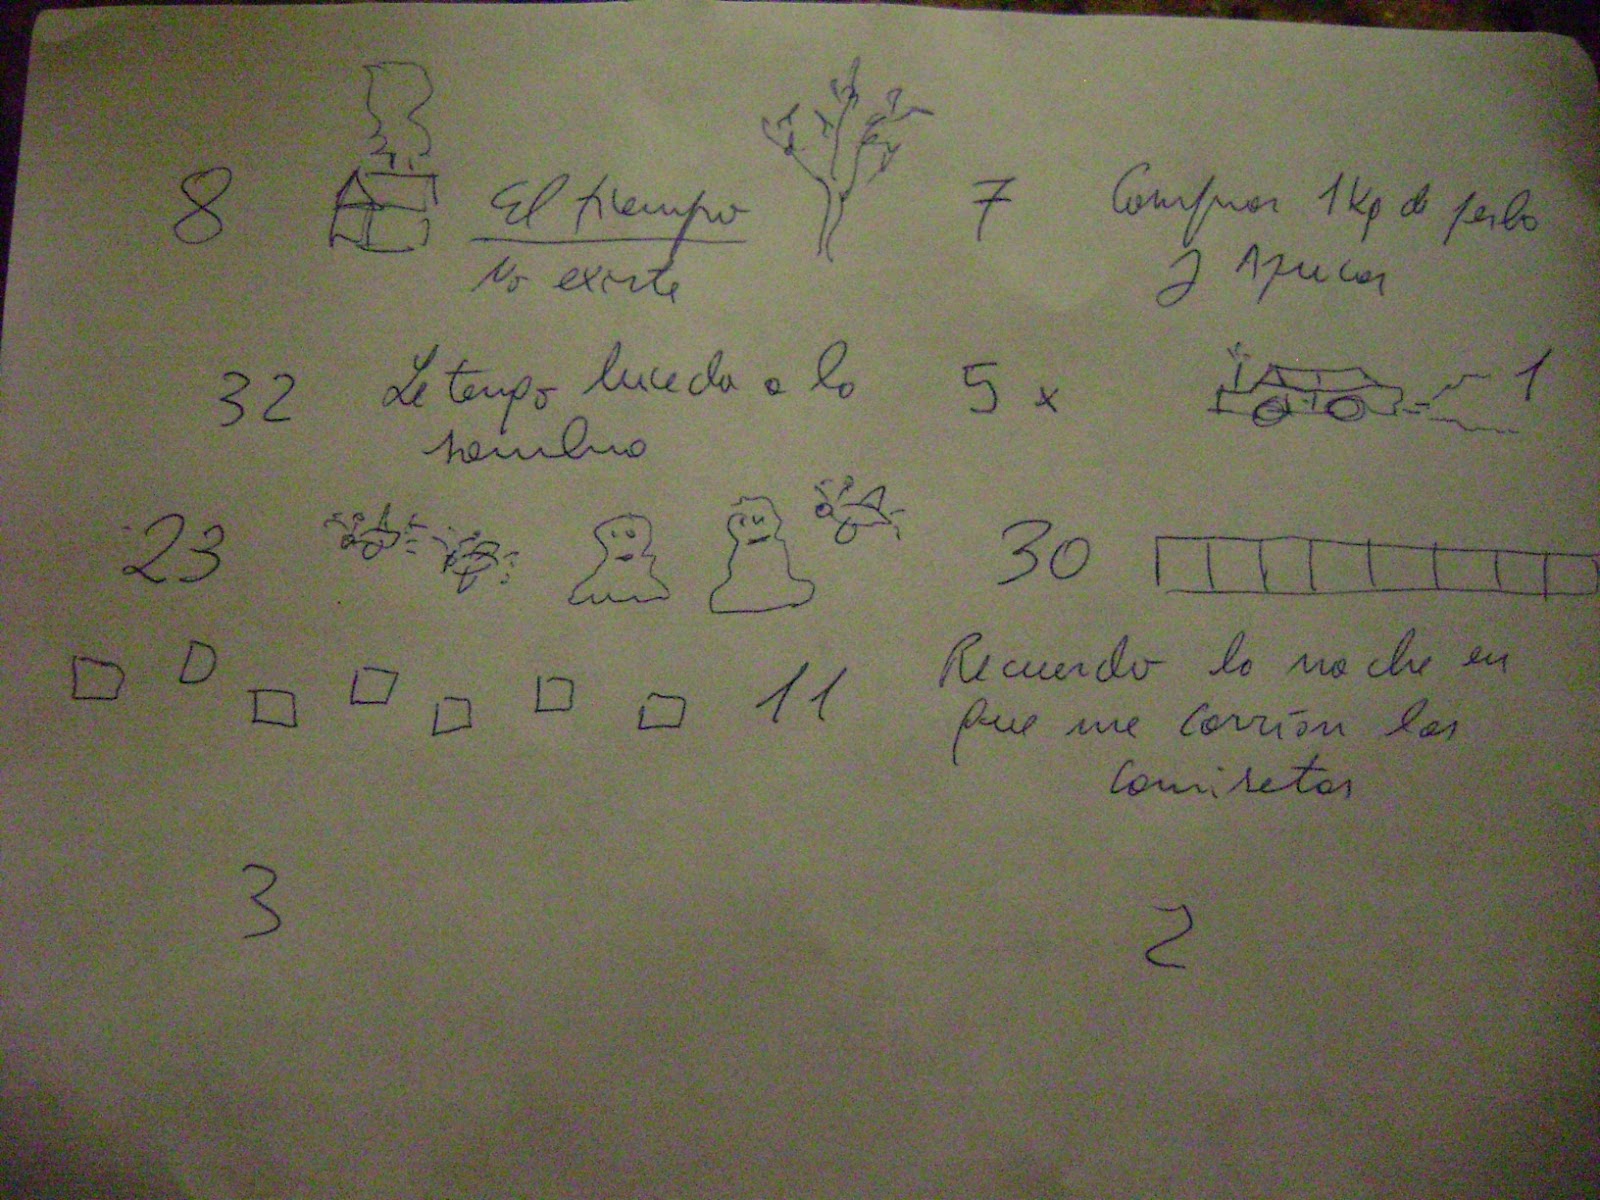 8 El tiempo 7 Comprar 1 Kg de yerba
No existe y Azucar
32 Le tengo miedo a la 5 x 1
sombra
23 30
11 Recuerdo la noche en
que me corrían las
camisetas
3 2